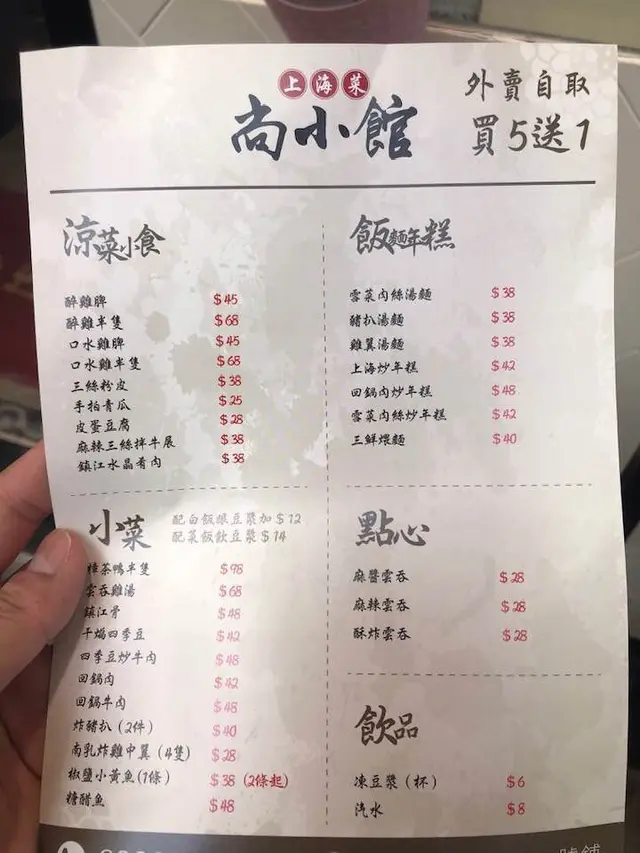 上海菜
尚小館
外賣自取
買5送1
涼菜小食
醉雞脾 $45
醉雞半隻 $68
口水雞脾 $45
口水雞半隻 $68
三絲粉皮 $38
手拍青瓜 $25
皮蛋豆腐 $28
麻辣三絲拌牛展 $38
鎮江水晶肴肉 $38
飯麵年糕
雪菜肉絲湯麵 $38
豬扒湯麵 $38
雞翼湯麵 $38
上海炒年糕 $42
回鍋肉炒年糕 $48
雪菜肉絲炒年糕 $42
三鮮煨麵 $40
小菜
配白飯跟豆漿加 $12
配菜飯飲豆漿 $14
樟茶鴨半隻 $98
雲吞雞湯 $68
鎮江骨 $48
干煸四季豆 $42
四季豆炒牛肉 $48
回鍋肉 $42
回鍋牛肉 $48
炸豬扒（2件） $40
南乳炸雞中翼（4隻） $28
椒鹽小黃魚(1條) $38 (2條起)
糖醋魚 $48
點心
麻醬雲吞 $28
麻辣雲吞 $28
酥炸雲吞 $28
飲品
凍豆漿（杯） $6
汽水 $8